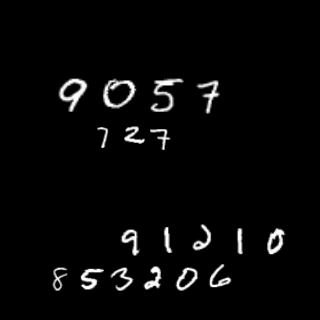 9057
727
91210
853206